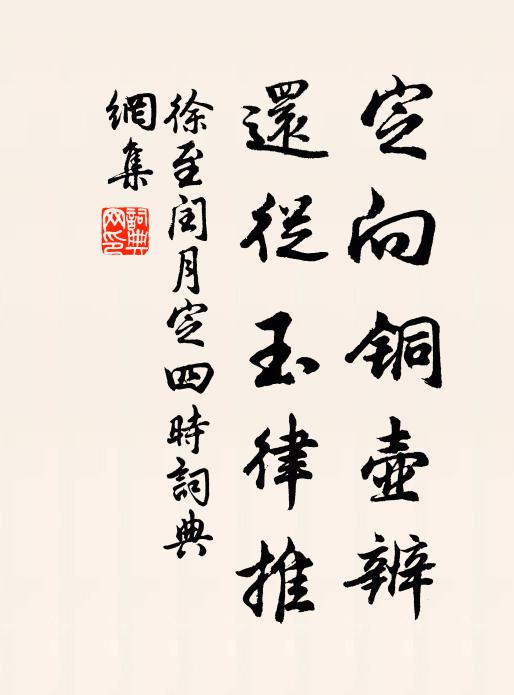 定向铜壶辨
還從玉律推
徐至闰月定四時詞典
網集
詞典网印